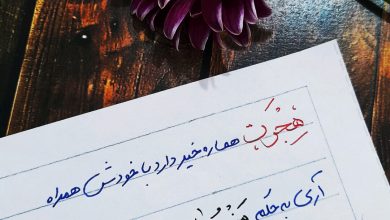 هجرت هماره خیر دارد با خودش همراه
آری به حکم